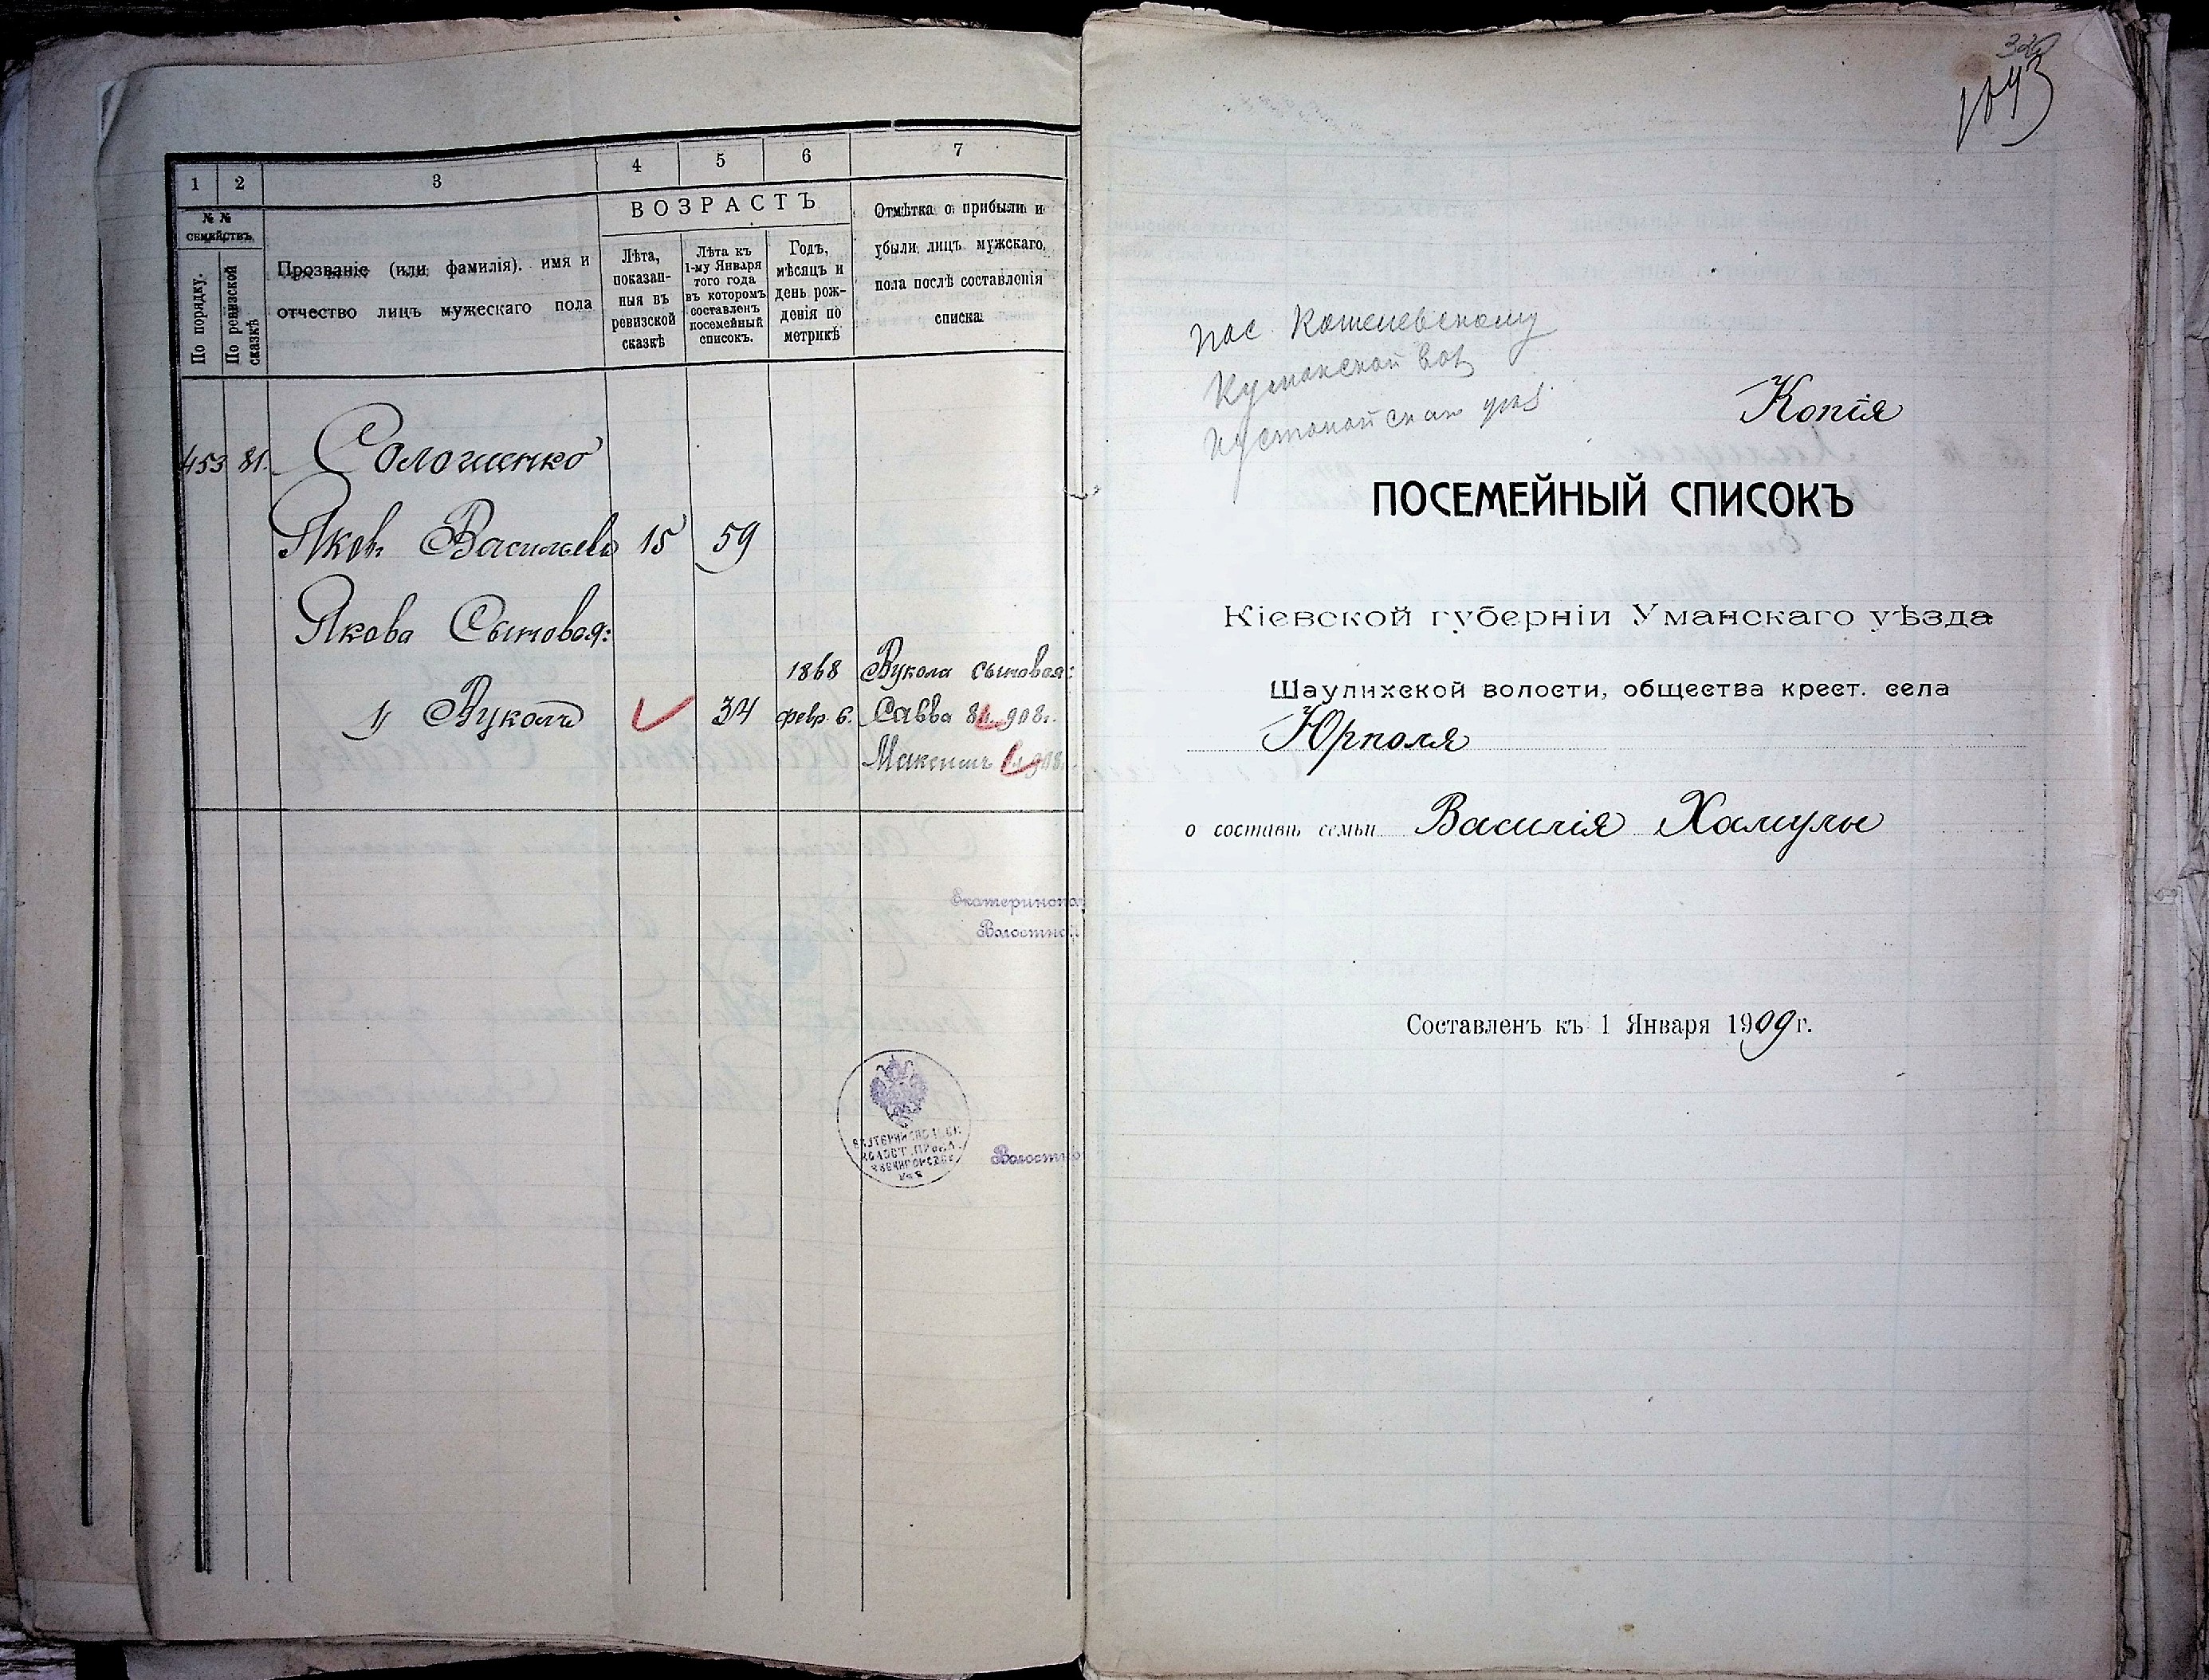 1 2 3 4 5 6 7
№ № семействъ
По порядку.
По ревизской сказкѣ
Прозваніе (или фамилія). имя и
отчество лицъ мужескаго пола
ВОЗРАСТЪ
Лѣта,
показан-
ныя въ
ревизской
сказкѣ
Лѣта къ
1-му Января
того года
въ которомъ
составленъ
посемейный
список.
Годъ,
мѣсяцъ и
день рож-
денія по
метрикѣ
Отмѣтка о прибыли и
убыли лицъ мужскаго
пола послѣ составленія
списка
453 81. Сологиенко
Яковъ Васильевъ 15 59
Якова Сыновья:
1868 Вукола сыновья:
1) Вуколъ 34 февр. 6. Савва 908г.
Максимъ 908г.
Екатериноп
Волостно
Волостно
1093
пос. Кошелевскому
вол
Копія
ПОСЕМЕЙНЫЙ СПИСОКЪ
Кіевской губерніи Уманскаго уѣзда
Шаулихской волости, общества крест. села
Юрполя
о составѣ семьи Василія Хамулы
Составленъ къ 1 Января 1909 г.